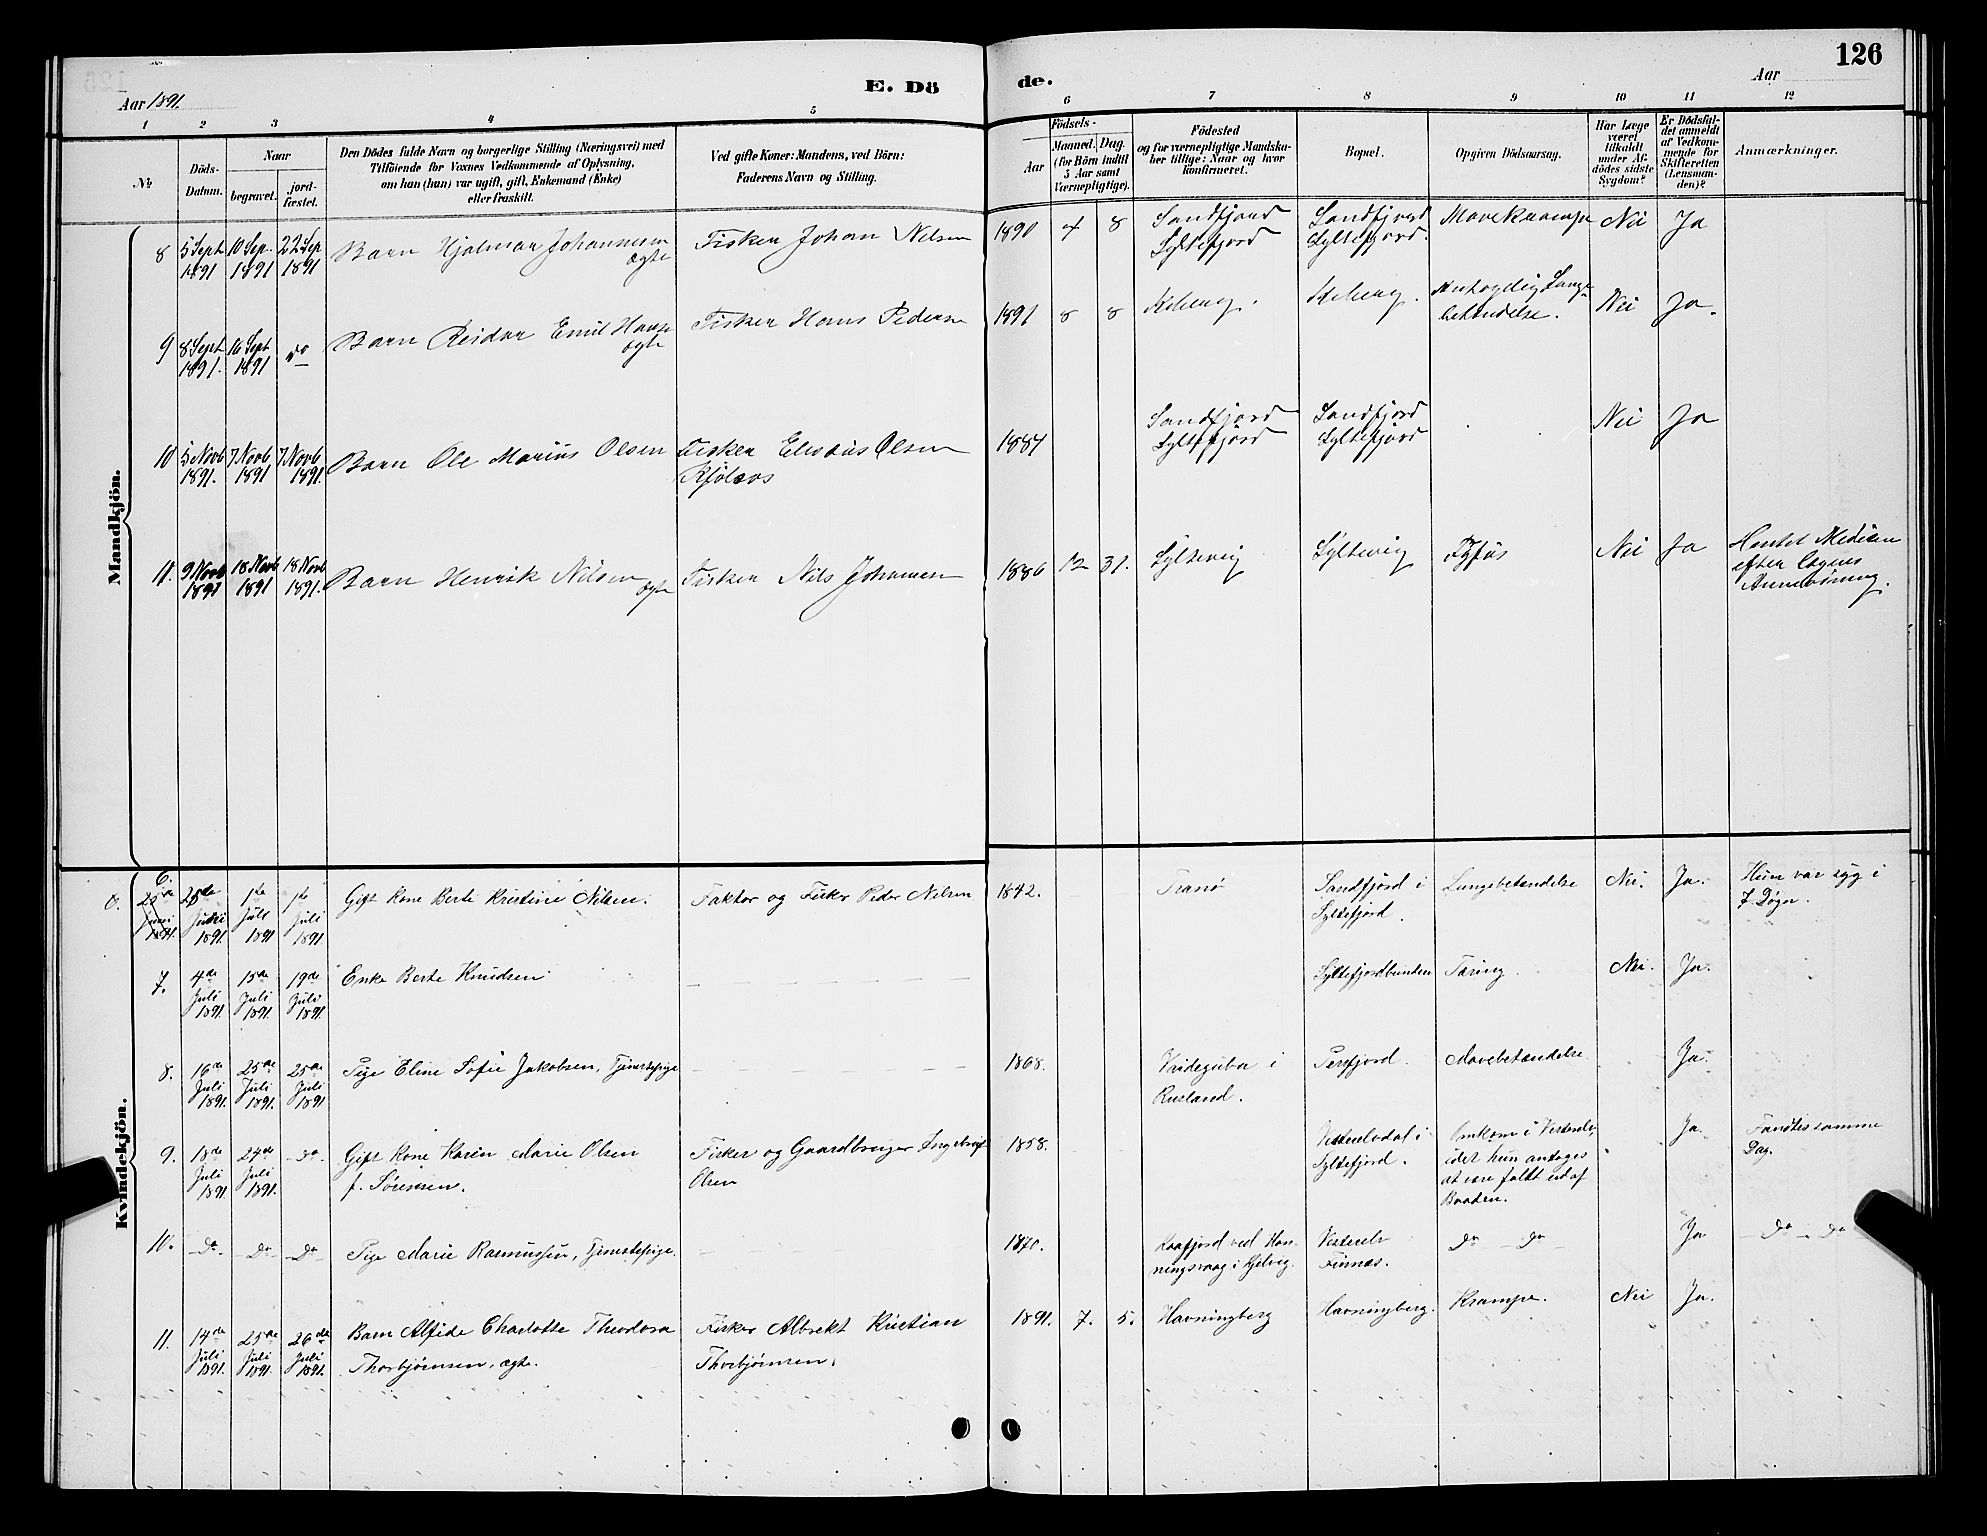 126
Aar 1891.
E. Dö
de.
Aar
1
2
3
4
5
6
7
8
9
10
11
12
№
Döds-
Datum.
Naar
begravet.
jord-
fæstet.
Den Dödes fulde Navn og borgerlige Stilling (Næringsvei) med
Tilföiende for Voxnes Vedkommende af Oplysning,
om han (hun) var ugift, gift, Enkemand (Enke)
eller fraskilt.
Ved gifte Koner: Mandens, ved Börn:
Faderens Navn og Stilling.
Födsels-
Aar
Maaned.
Dag.
(for Börn indtil
5 Aar samt
Værnepligtige).
Födested
og for værnepligtige Mandska-
ber tillige: Naar og hvor
konfirmeret.
Bopæl.
Opgiven Dödsaarsag.
Har Læge
været
tilkaldt
under Af-
dödes sidste
Sygdom?
Er Dödsfal-
det anmeldt
af Vedkom-
mende for
Skifteretten
(Lensman-
den)?
Anmærkninger.
Mandkjön.
8
5 Sept
1891
10 Sep.
1891
22 Sep
1891
Barn Hjalmar Johannesen
ægte
Fisker Johan Nilsen
1890
4
8
Sandfjord
Syltefjord
Sandfjord
Syltefjord.
Mavekrampe
Nei
Ja
9
8 Sept
1891.
16 Sept
1891
do
Barn Reidar Emil Hansen
ægte
Fisker Hans Pedersen
1891
8
8
Kiberg.
Kiberg.
betændelse.
Nei
Ja.
10
5 Novb
1891.
7 Novb
1891
7 Novb
1891.
Barn Ole Marius Olsen
Fisker Elisæus Olsen
Kjölaas
1884
Sandfjord
Syltefjord
Sandfjord
Syltefjord
Nei
Ja
11.
9 Novb
1891
18 Novb
1891
18 Novb
1891.
Barn Henrik Nilsen
ægte
Fisker Nils Johansen
1886
12
31.
Syltevig
Syltevig
Tyfus
Nei
Ja
Hentet Medisin
efter Lægens
Anvisning.
Kvindekjön.
6.
25de
Juni
1891.
25de
Juni
1891.
1ste
Juli
1891
1ste
Juli
1891
Gift Kone Berte Kristine Nilsen.
Faktor og Fisker Peder Nilsen
1842.
Tranö
Sandfjord i
Syltefjord.
Lungebetændelse
Nei.
Ja.
Hun var syg i
7 Døgn.
7.
4de
Juli
1891.
15de
Juli
1891.
19de
Juli
1891.
Enke Berte Knudsen
Syltefjordbunden
Tæring.
Nei.
Ja.
8.
16de
Juli
1891.
25de
Juli
1891.
25de
Juli
1891
Pige Eline Sofie Jakobsen, Tjenestepige
1868.
Vaideguba i
Rusland.
Persfjord.
Mavebetændelse
Ja.
9.
18de
Juli
1891.
24de
Juli
1891.
do.
Gift Kone Karen Marie Olsen
f. Sörensen.
Fisker og Gaardbruger Ingebrigt
Olsen
1858.
Vesterelvdal i
Syltefjord.
Omkom i Vesterelv,
idet hun antages
at være faldt ud af
Baaden.
Ja.
Fandtes samme
Dag.
10.
Do
Do
Do
Pige Marie Rasmussen, Tjenestepige.
1870.
Kaafjord ved Hon-
ningsvaag i Kjelvig.
Vesterelv
Finnæs.
Do Do
Ja
Do Do
11.
14de
Juli
1891.
25de
Juli
1891.
26de
Juli
1891.
Barn Alfide Charlotte Theodora
Thorbjörnsen, ægte.
Fisker Albrekt Kristian
Thorbjörnsen.
1891.
7.
5.
Havningberg
Havningberg.
Krampe.
Nei
Ja.